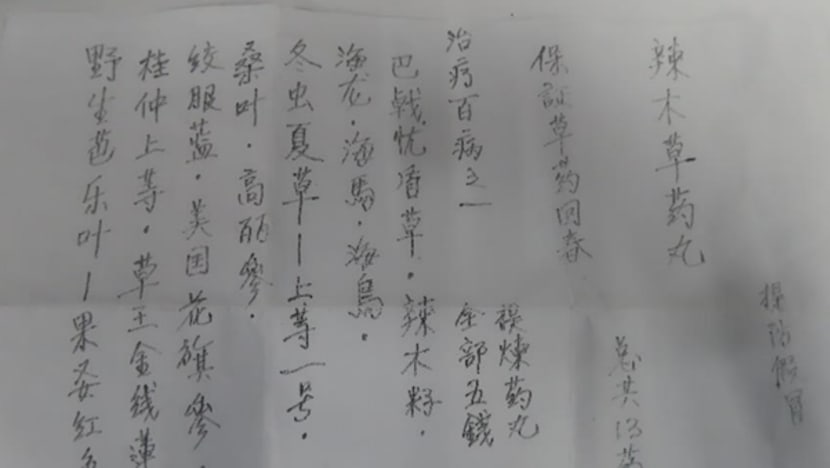 提防假冒
辣木草药丸
总共13
保証草药回春
煉药丸
治疗百病之一
全部五錢
巴戟.忧盾草.辣木籽.
海龙.海馬.海鳥.
冬虫夏草一上等一号.
桑叶.高丽參.
绞股蓝.美国花旗參.
桂仲上等.草王金线蓮
野生芭乐叶一果要红